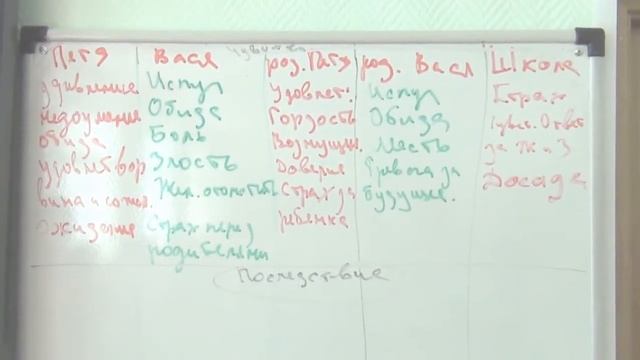 Петя
удивление
недоумение
обида
удовлетвор
вина и
ожидение
Вася
Испуг
Обида
Боль
Злость
Жел. отомстить
Страх перед
родителями
Чувства
род. Петя
Удовлет.
Гордость
Возмущен.
Доверие
Страх за
ребенка
род. Вася
Испуг
Обида
Месть
Тревога за
будущее.
Школа
Страх
Чувс. Ответ
за Ж и З
Досада
Последствие